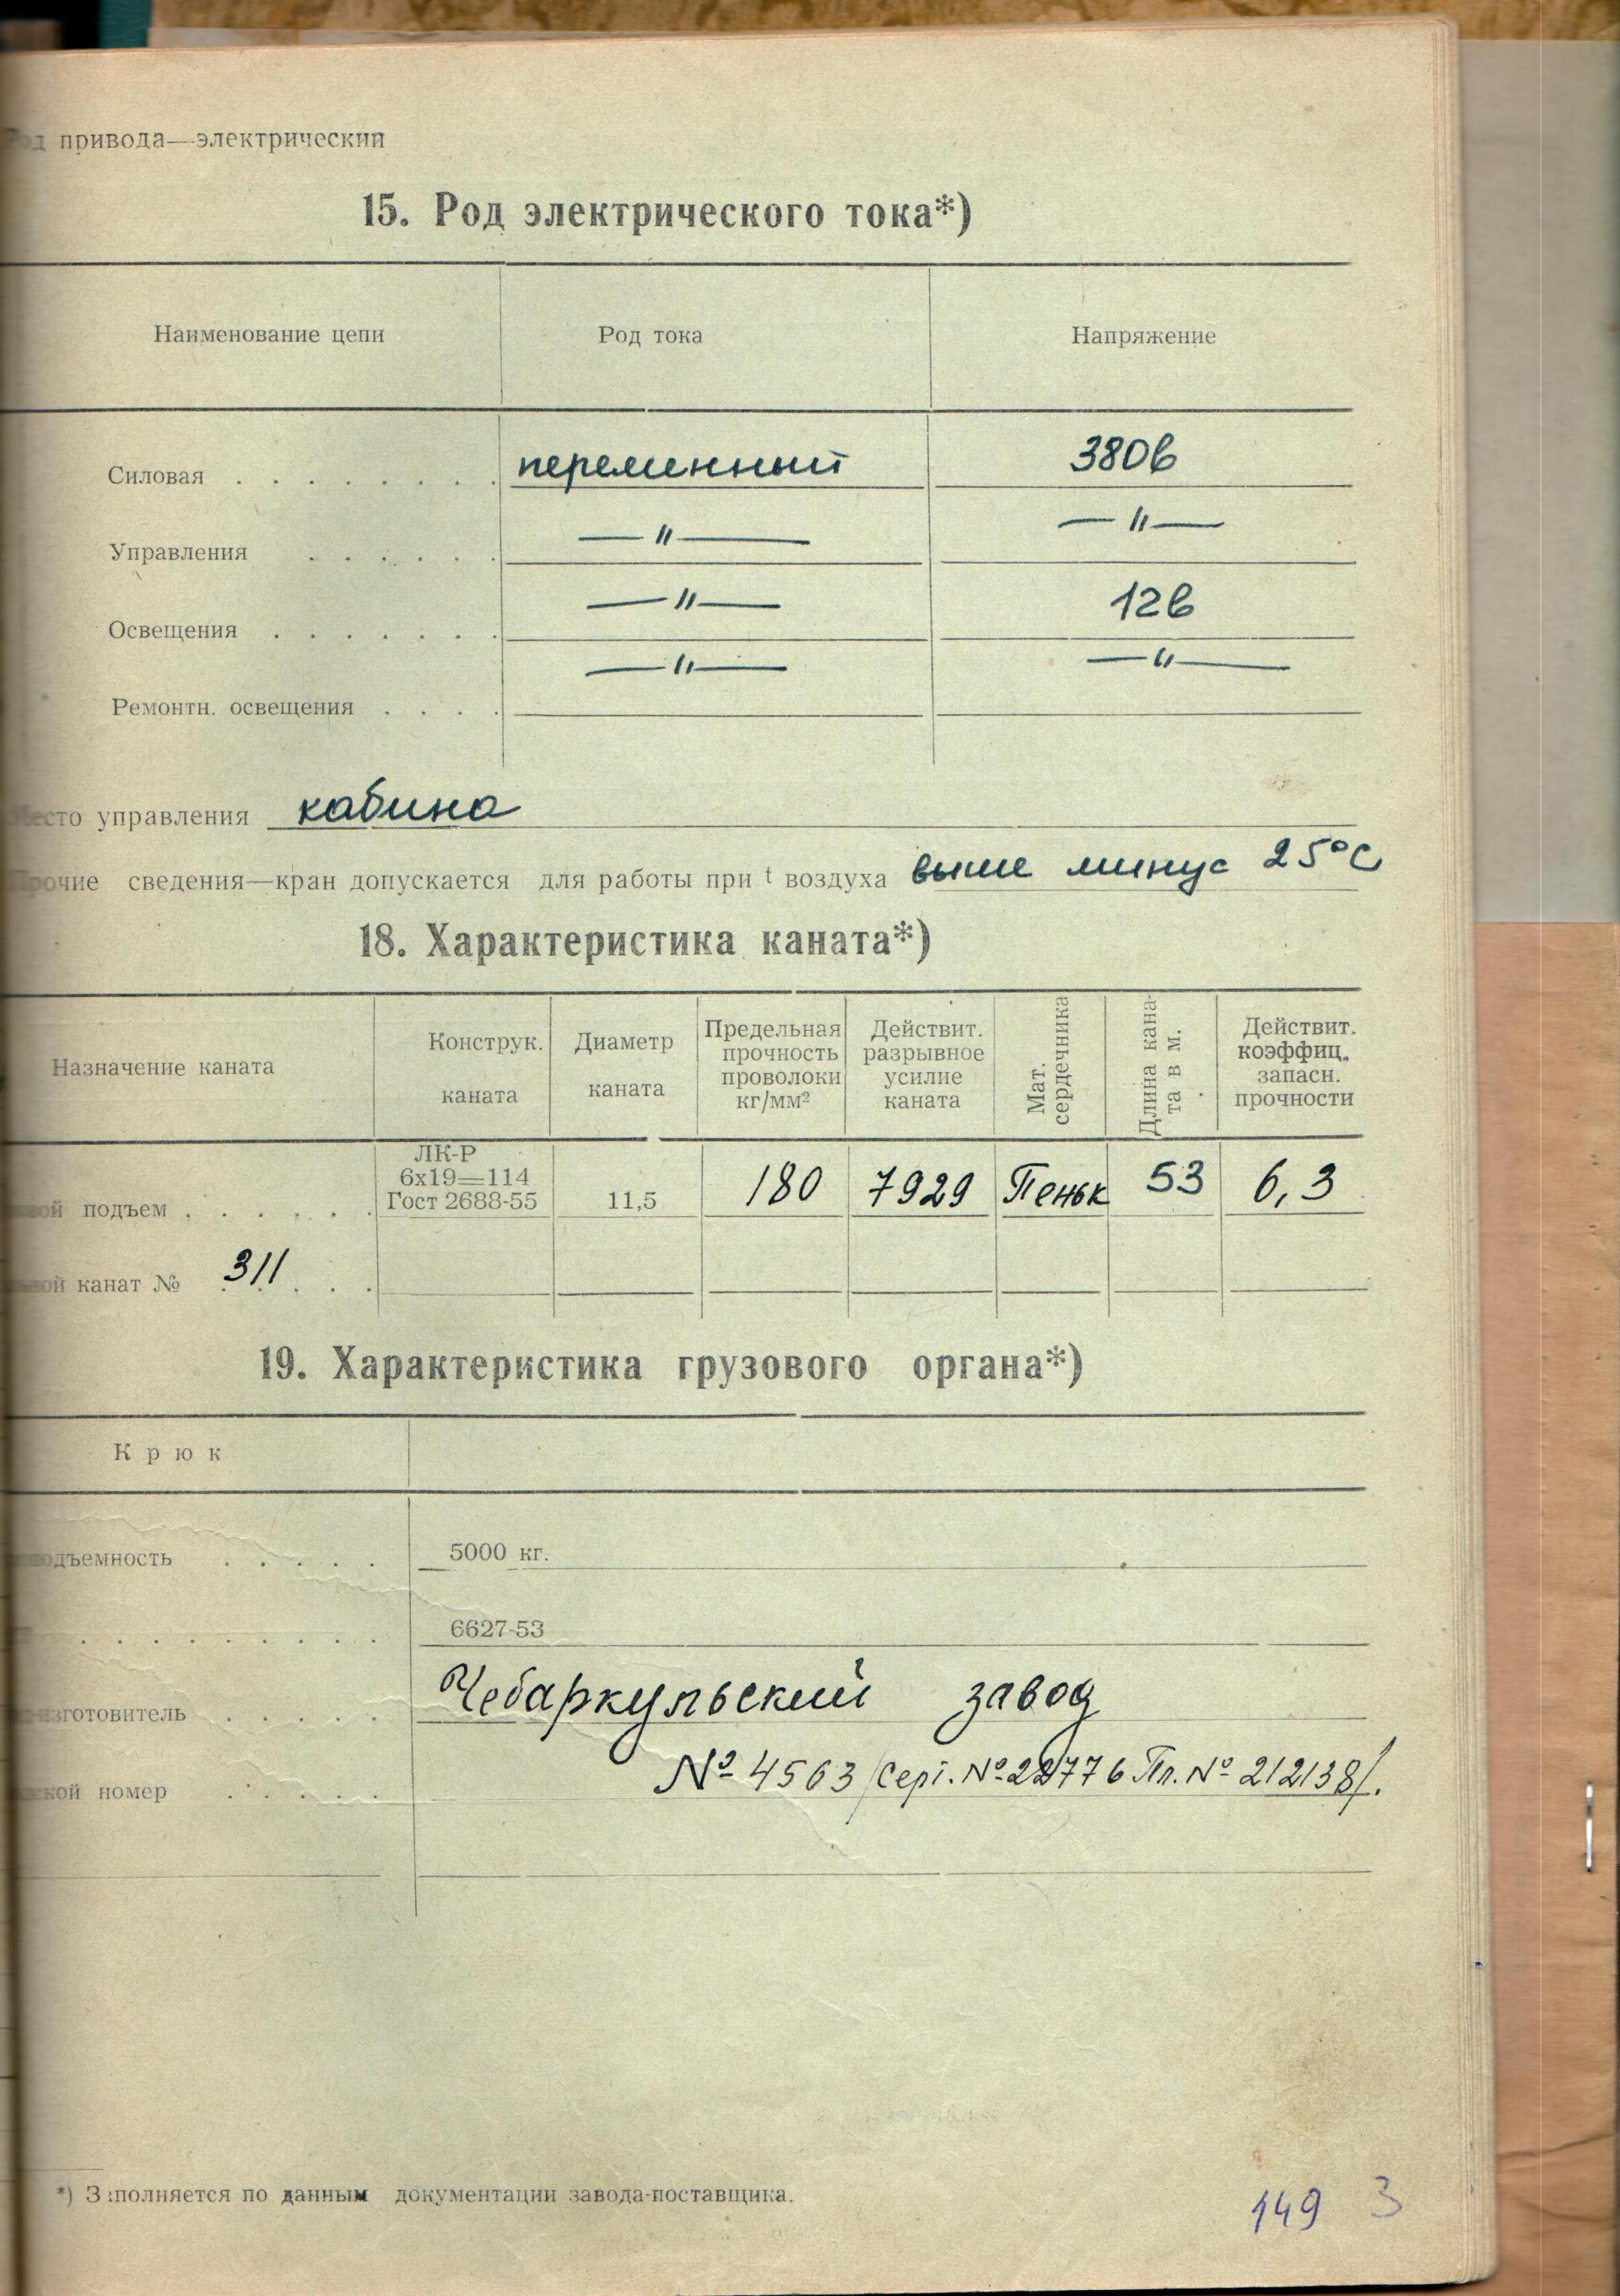 Род привода—электрический
15. Род электрического тока*)
Наименование цепи Род тока Напряжение
Силовая . . . . . . . . переменный 380в
Управления . . . . . . —〃 — — 〃 —
Освещения . . . . . . . — 〃 — 12в
Ремонтн. освещения . . . . — 〃 — — 〃 —
Место управления кабина
Прочие сведения—кран допускается для работы при t воздуха выше минус 25°С
18. Характеристика каната*)
Назначение каната
Конструк.
каната
Диаметр
каната
Предельная
прочность
проволоки
кг/мм²
Действит.
разрывное
усилие
каната
Мат.
сердечника
Длина кана-
та в м.
Действит.
коэффиц.
запасн.
прочности
ЛК-Р
6х19=114
подъем . . . . . . Гост 2688-55 11,5 180 7929 Пеньк 53 6,3
канат № 311 . . .
19. Характеристика грузового органа*)
Крюк
подъемность . . . . . 5000 кг.
. . . . . . . . . 6627-53
изготовитель . . . . . Чебаркульский завод
номер . . . . . № 4563 /Серт. № 22776 Пл. № 212138/.
*) Заполняется по данным документации завода-поставщика.
149 3